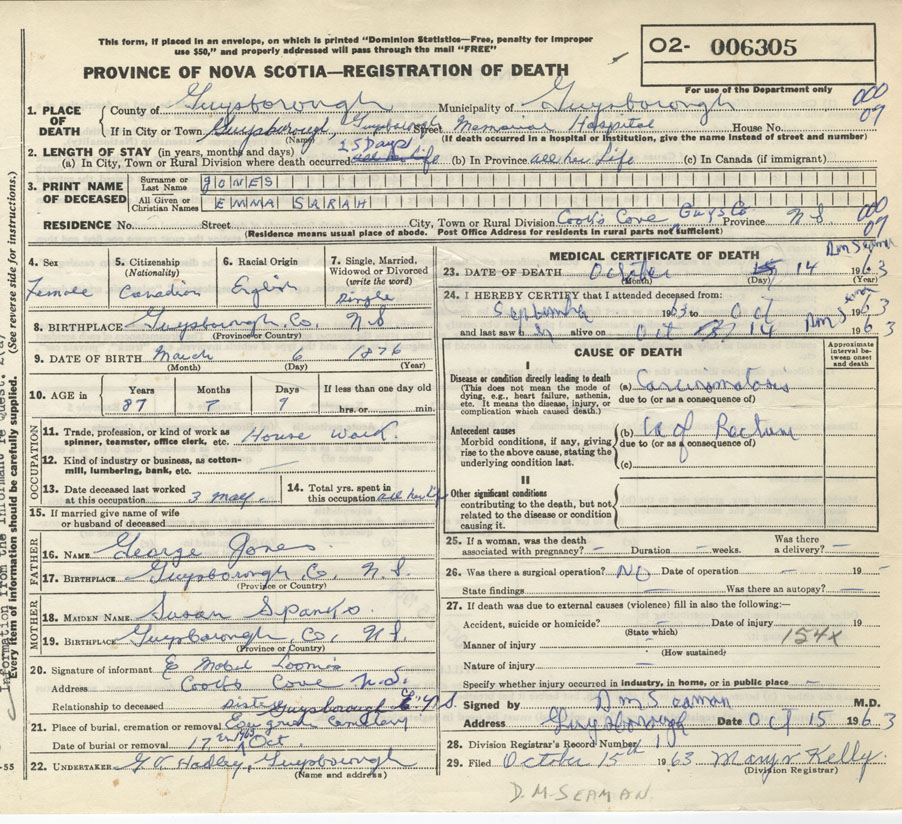 This form, if placed in an envelope, on which is printed "Dominion Statistics—Free, penalty for improper
use $50," and properly addressed will pass through the mail "FREE"
O2- 006305
For use of the Department only
PROVINCE OF NOVA SCOTIA—REGISTRATION OF DEATH
000
09
1. PLACE OF DEATH
County of Guysborough Municipality of Guysborough
If in City or Town Guysborough, Guysborough Street Memorial Hospital House No.
(Name) (If death occurred in a hospital or institution, give the name instead of street and number)
2. LENGTH OF STAY (in years, months and days) 25 Days
(a) In City, Town or Rural Division where death occurred all her life (b) In Province all her Life (c) In Canada (if immigrant)
3. PRINT NAME OF DECEASED
Surname or Last Name JONES
All Given or Christian Names EMMA SARAH
000
09
RESIDENCE No. Street City, Town or Rural Division Cook's Cove Guys Co Province N S
(Residence means usual place of abode. Post Office Address for residents in rural parts not sufficient)
4. Sex Female
5. Citizenship (Nationality) Canadian
6. Racial Origin English
7. Single, Married, Widowed or Divorced (write the word) Single
8. BIRTHPLACE Guysborough, Co. N S
(Province or Country)
9. DATE OF BIRTH March 6 1876
(Month) (Day) (Year)
10. AGE in Years 87 Months 7 Days 9 If less than one day old hrs. or min.
OCCUPATION
11. Trade, profession, or kind of work as spinner, teamster, office clerk, etc. House Work.
12. Kind of industry or business, as cotton-mill, lumbering, bank, etc. —
13. Date deceased last worked at this occupation 3 May.
14. Total yrs. spent in this occupation all her life
15. If married give name of wife or husband of deceased
FATHER
16. NAME George Jones.
17. BIRTHPLACE Guysborough Co, N. S.
(Province or Country)
MOTHER
18. MAIDEN NAME Susan
19. BIRTHPLACE Guysborough, Co, N S.
(Province or Country)
20. Signature of informant E Mabel Loomis
Address Cook's Cove N.S.
Relationship to deceased sister Guysborough
21. Place of burial, cremation or removal Evergreen Cemetery
Date of burial or removal 17 Oct.
22. UNDERTAKER Hadley, Guysborough
(Name and address)
MEDICAL CERTIFICATE OF DEATH
DM Seaman
23. DATE OF DEATH October 14 1963
(Month) (Day)
24. I HEREBY CERTIFY that I attended deceased from:
September 1963 to Oct 1963
and last saw alive on Oct 14 DM Seaman 1963
CAUSE OF DEATH
Approximate interval between onset and death
I
Disease or condition directly leading to death
(This does not mean the mode of dying, e.g., heart failure, asthenia, etc. It means the disease, injury, or complication which caused death.)
(a) Carcinomatosis
due to (or as a consequence of)
Antecedent causes
Morbid conditions, if any, giving rise to the above cause, stating the underlying condition last.
(b) Ca of Rectum
due to (or as a consequence of)
(c)
II
Other significant conditions
contributing to the death, but not related to the disease or condition causing it.
25. If a woman, was the death associated with pregnancy? — Duration — weeks. Was there a delivery? —
26. Was there a surgical operation? NO Date of operation — 19 -
State findings Was there an autopsy? -
27. If death was due to external causes (violence) fill in also the following:—
Accident, suicide or homicide? — Date of injury 19
(State which)
154x
Manner of injury —
(How sustained)
Nature of injury —
Specify whether injury occurred in industry, in home, or in public place —
Signed by DM Seaman M.D.
Address Guysborough Date Oct 15 1963
28. Division Registrar's Record Number
29. Filed October 15th 1963 Mary Kelly.
(Division Registrar)
D. M. SEAMAN.
Every item of information should be carefully supplied. (See reverse side for instructions.)
-55